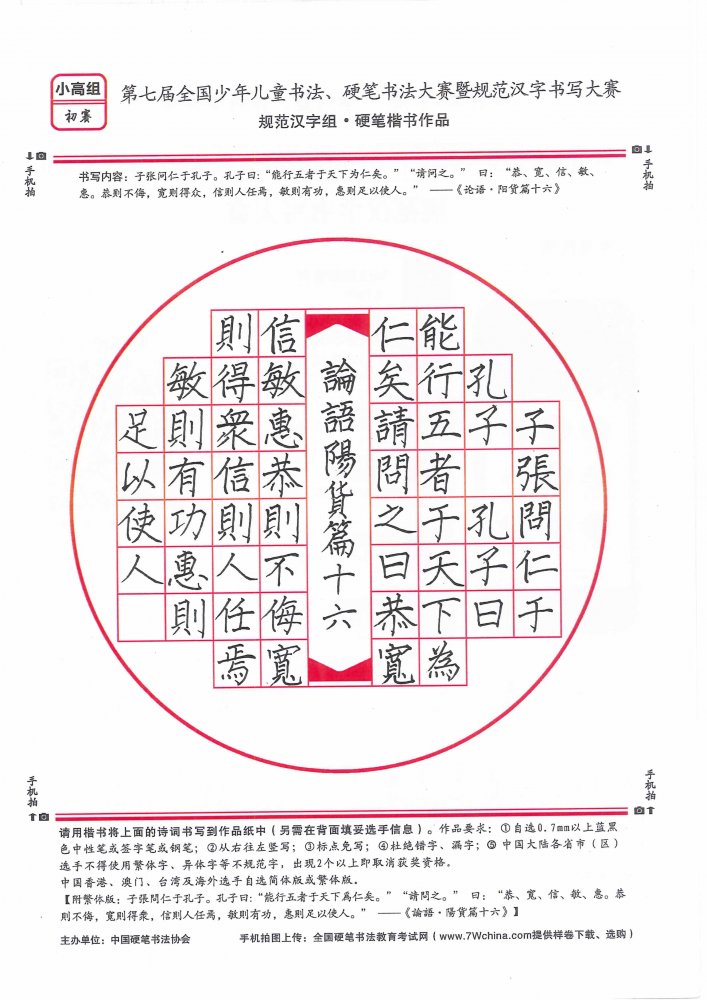 小高组
初赛
第七届全国少年儿童书法、硬笔书法大赛暨规范汉字书写大赛
规范汉字组·硬笔楷书作品
手机拍
手机拍
书写内容：子张问仁于孔子。孔子曰：“能行五者于天下为仁矣。”“请问之。” 曰：“恭、宽、信、敏、
惠。恭则不侮，宽则得众，信则人任焉，敏则有功，惠则足以使人。” ——《论语·阳货篇十六》
子張問仁于
孔子 孔子曰
能行五者于天下為
仁矣請問之曰恭寬
論語陽貨篇十六
信敏惠恭則不侮寬
則得衆信則人任焉
敏則有功惠則
足以使人
手机拍
手机拍
请用楷书将上面的诗词书写到作品纸中（另需在背面填妥选手信息）。作品要求：①自选0.7mm以上蓝黑
色中性笔或签字笔或钢笔；②从右往左竖写；③标点免写；④杜绝错字、漏字；⑤ 中国大陆各省市（区）
选手不得使用繁体字、异体字等不规范字，出现2个以上即取消获奖资格。
中国香港、澳门、台湾及海外选手自选简体版或繁体版。
【附繁体版：子張問仁于孔子。孔子曰：“能行五者于天下爲仁矣。”“請問之。” 曰：“恭、宽、信、敏、惠。恭
则不侮，寬則得衆，信則人任焉，敏則有功，惠則足以使人。” ——《論語·陽貨篇十六》】
主办单位：中国硬笔书法协会
手机拍图上传：全国硬笔书法教育考试网（www.7Wchina.com提供样卷下载、选购）